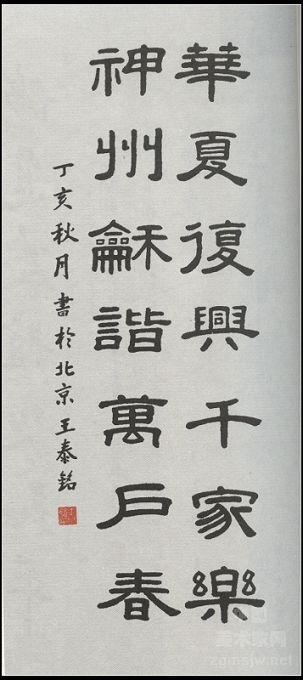 華夏復興千家樂
神州龢諧萬戶春
丁亥秋月書於北京王泰銘
zgmsjw.net